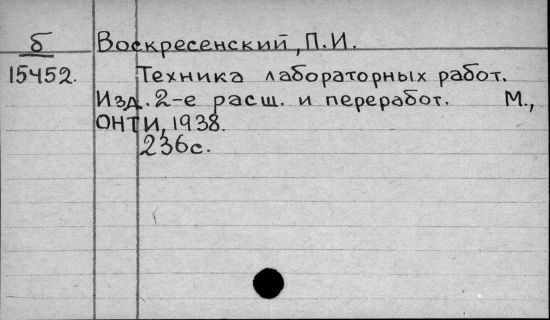 б Воскресенский, П.И.
15452. Техника лабораторных работ.
Изд. 2-е расш. и переработ. М.,
ОНТИ, 1938.
236с.